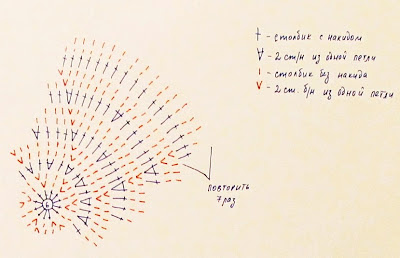 - столбик с накидом
- 2 ст/н из одной петли
- столбик без накида
- 2 ст. б/н из одной петли
повторить
7 раз
6